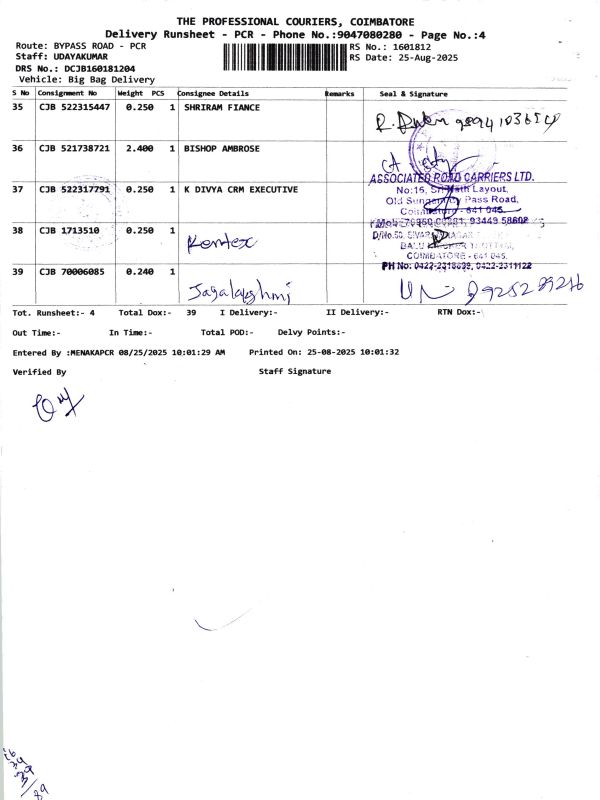 THE PROFESSIONAL COURIERS, COIMBATORE
Delivery Runsheet - PCR - Phone No.:9047080280 - Page No.:4
Route: BYPASS ROAD - PCR
RS No.: 1601812
Staff: UDAYAKUMAR
RS Date: 25-Aug-2025
DRS No.: DCJB160181204
Vehicle: Big Bag Delivery
S No Consignment No Weight PCS Consignee Details Remarks Seal & Signature
35 CJB 522315447 0.250 1 SHRIRAM FIANCE
36 CJB 521738721 2.400 1 BISHOP AMBROSE
ASSOCIATED ROAD CARRIERS LTD.
37 CJB 522317791 0.250 1 K DIVYA CRM EXECUTIVE
No:16, Sri Nath Layout,
Pass Road,
38 CJB 1713510 0.250 1
COIMBATORE - 641 045.
PH No: 0422-2318639, 0422-2311122
39 CJB 70006085 0.240 1
Tot. Runsheet:- 4 Total Dox:- 39 I Delivery:- II Delivery:- RTN Dox:-
Out Time:- In Time:- Total POD:- Delvy Points:-
Entered By :MENAKAPCR 08/25/2025 10:01:29 AM Printed On: 25-08-2025 10:01:32
Verified By Staff Signature